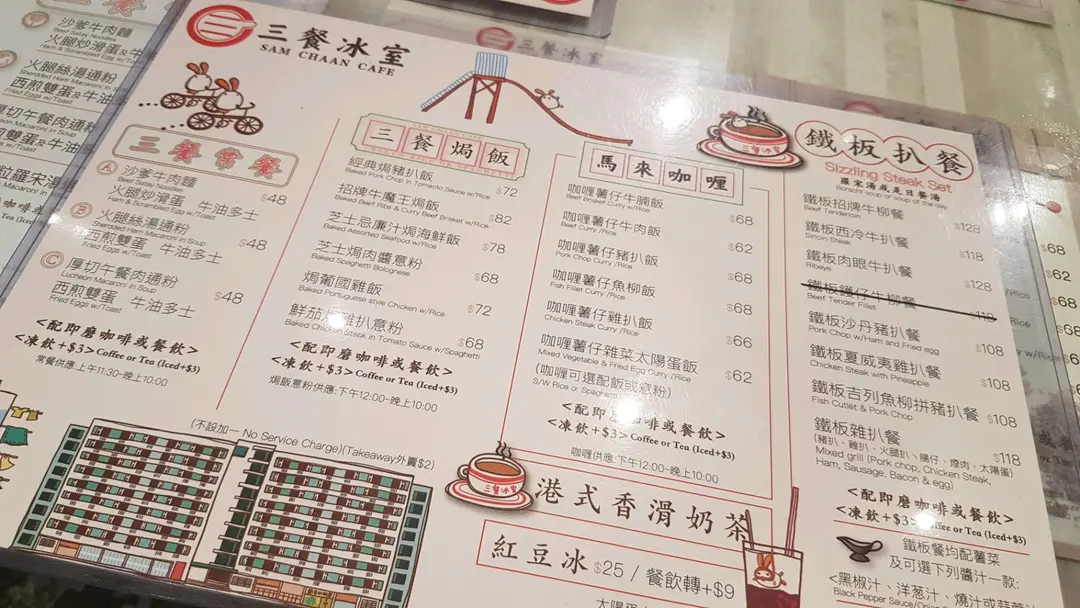 三餐冰室
SAM CHAAN CAFE
三餐常餐
A 沙爹牛肉麵
Beef Satay Noodles
火腿炒滑蛋 牛油多士 $48
Ham & Scrambled Egg w/Toast
B 火腿絲湯通粉
Shredded Ham Macaroni in Soup
西煎雙蛋 牛油多士 $48
Fried Eggs w/Toast
C 厚切午餐肉通粉
Lucheon Macaroni in Soup
西煎雙蛋 牛油多士 $48
Fried Eggs w/Toast
<配即磨咖啡或餐飲>
<凍飲+$3> Coffee or Tea (Iced+$3)
常餐供應:上午11:30~晚上10:00
三餐焗飯
經典焗豬扒飯
Baked Pork Chop in Tomato Sauce w/Rice $72
招牌牛魔王焗飯
Baked Beef Ribs & Curry Beef Brisket w/Rice $82
芝士忌廉汁焗海鮮飯
Baked Assorted Seafood w/Rice $78
芝士焗肉醬意粉
Baked Spaghetti Bolognese $68
焗葡國雞飯
Baked Portuguese style Chicken w/Rice $72
鮮茄 雞扒意粉
Baked Chicken Steak in Tomato Sauce w/Spaghetti $68
<配即磨咖啡或餐飲>
<凍飲+$3> Coffee or Tea (Iced+$3)
焗飯意粉供應:下午12:00~晚上10:00
馬來咖喱
咖喱薯仔牛腩飯
Beef Brisket Curry w/Rice $68
咖喱薯仔牛肉飯
Beef Curry /Rice $62
咖喱薯仔豬扒飯
Pork Chop Curry /Rice $68
咖喱薯仔魚柳飯
Fish Fillet Curry /Rice $68
咖喱薯仔雞扒飯
Chicken Steak Curry /Rice $66
咖喱薯仔雜菜太陽蛋飯
Mixed Vegetable & Fried Egg Curry /Rice $62
(咖喱可選配飯或意粉)
S/W Rice or Spaghetti
<配即磨咖啡或餐飲>
<凍飲+$3> Coffee or Tea (Iced+$3)
咖喱供應:下午12:00~晚上10:00
三餐冰室
鐵板扒餐
Sizzling Steak Set
羅宋湯或是日餐湯
Borscht soup or soup of the day
鐵板招牌牛柳餐 $128
Beef Tenderloin
鐵板西冷牛扒餐 $118
Sirloin Steak
鐵板肉眼牛扒餐 $128
Ribeye
鐵板鑊仔牛柳餐 $118
Beef Tender Fillet
鐵板沙丹豬扒餐 $108
Pork Chop w/Ham and Fried egg
鐵板夏威夷雞扒餐 $108
Chicken Steak with Pineapple
鐵板吉列魚柳拼豬扒餐 $108
Fish Cutlet & Pork Chop
鐵板雜扒餐 $118
(豬扒、雞扒、火腿扒、腸仔、煙肉、太陽蛋)
Mixed grill (Pork chop, Chicken Steak, Ham, Sausage, Bacon & egg)
<配即磨咖啡或餐飲>
<凍飲+$3> Coffee or Tea (Iced+$3)
鐵板餐均配薯菜
及可選下列醬汁一款:
<黑椒汁、洋葱汁、燒汁或蒜蓉汁
Black Pepper Sauce
(不設加一 No Service Charge)(Takeaway外賣$2)
三餐冰室
港式香滑奶茶
紅豆冰 $25 / 餐飲轉+$9